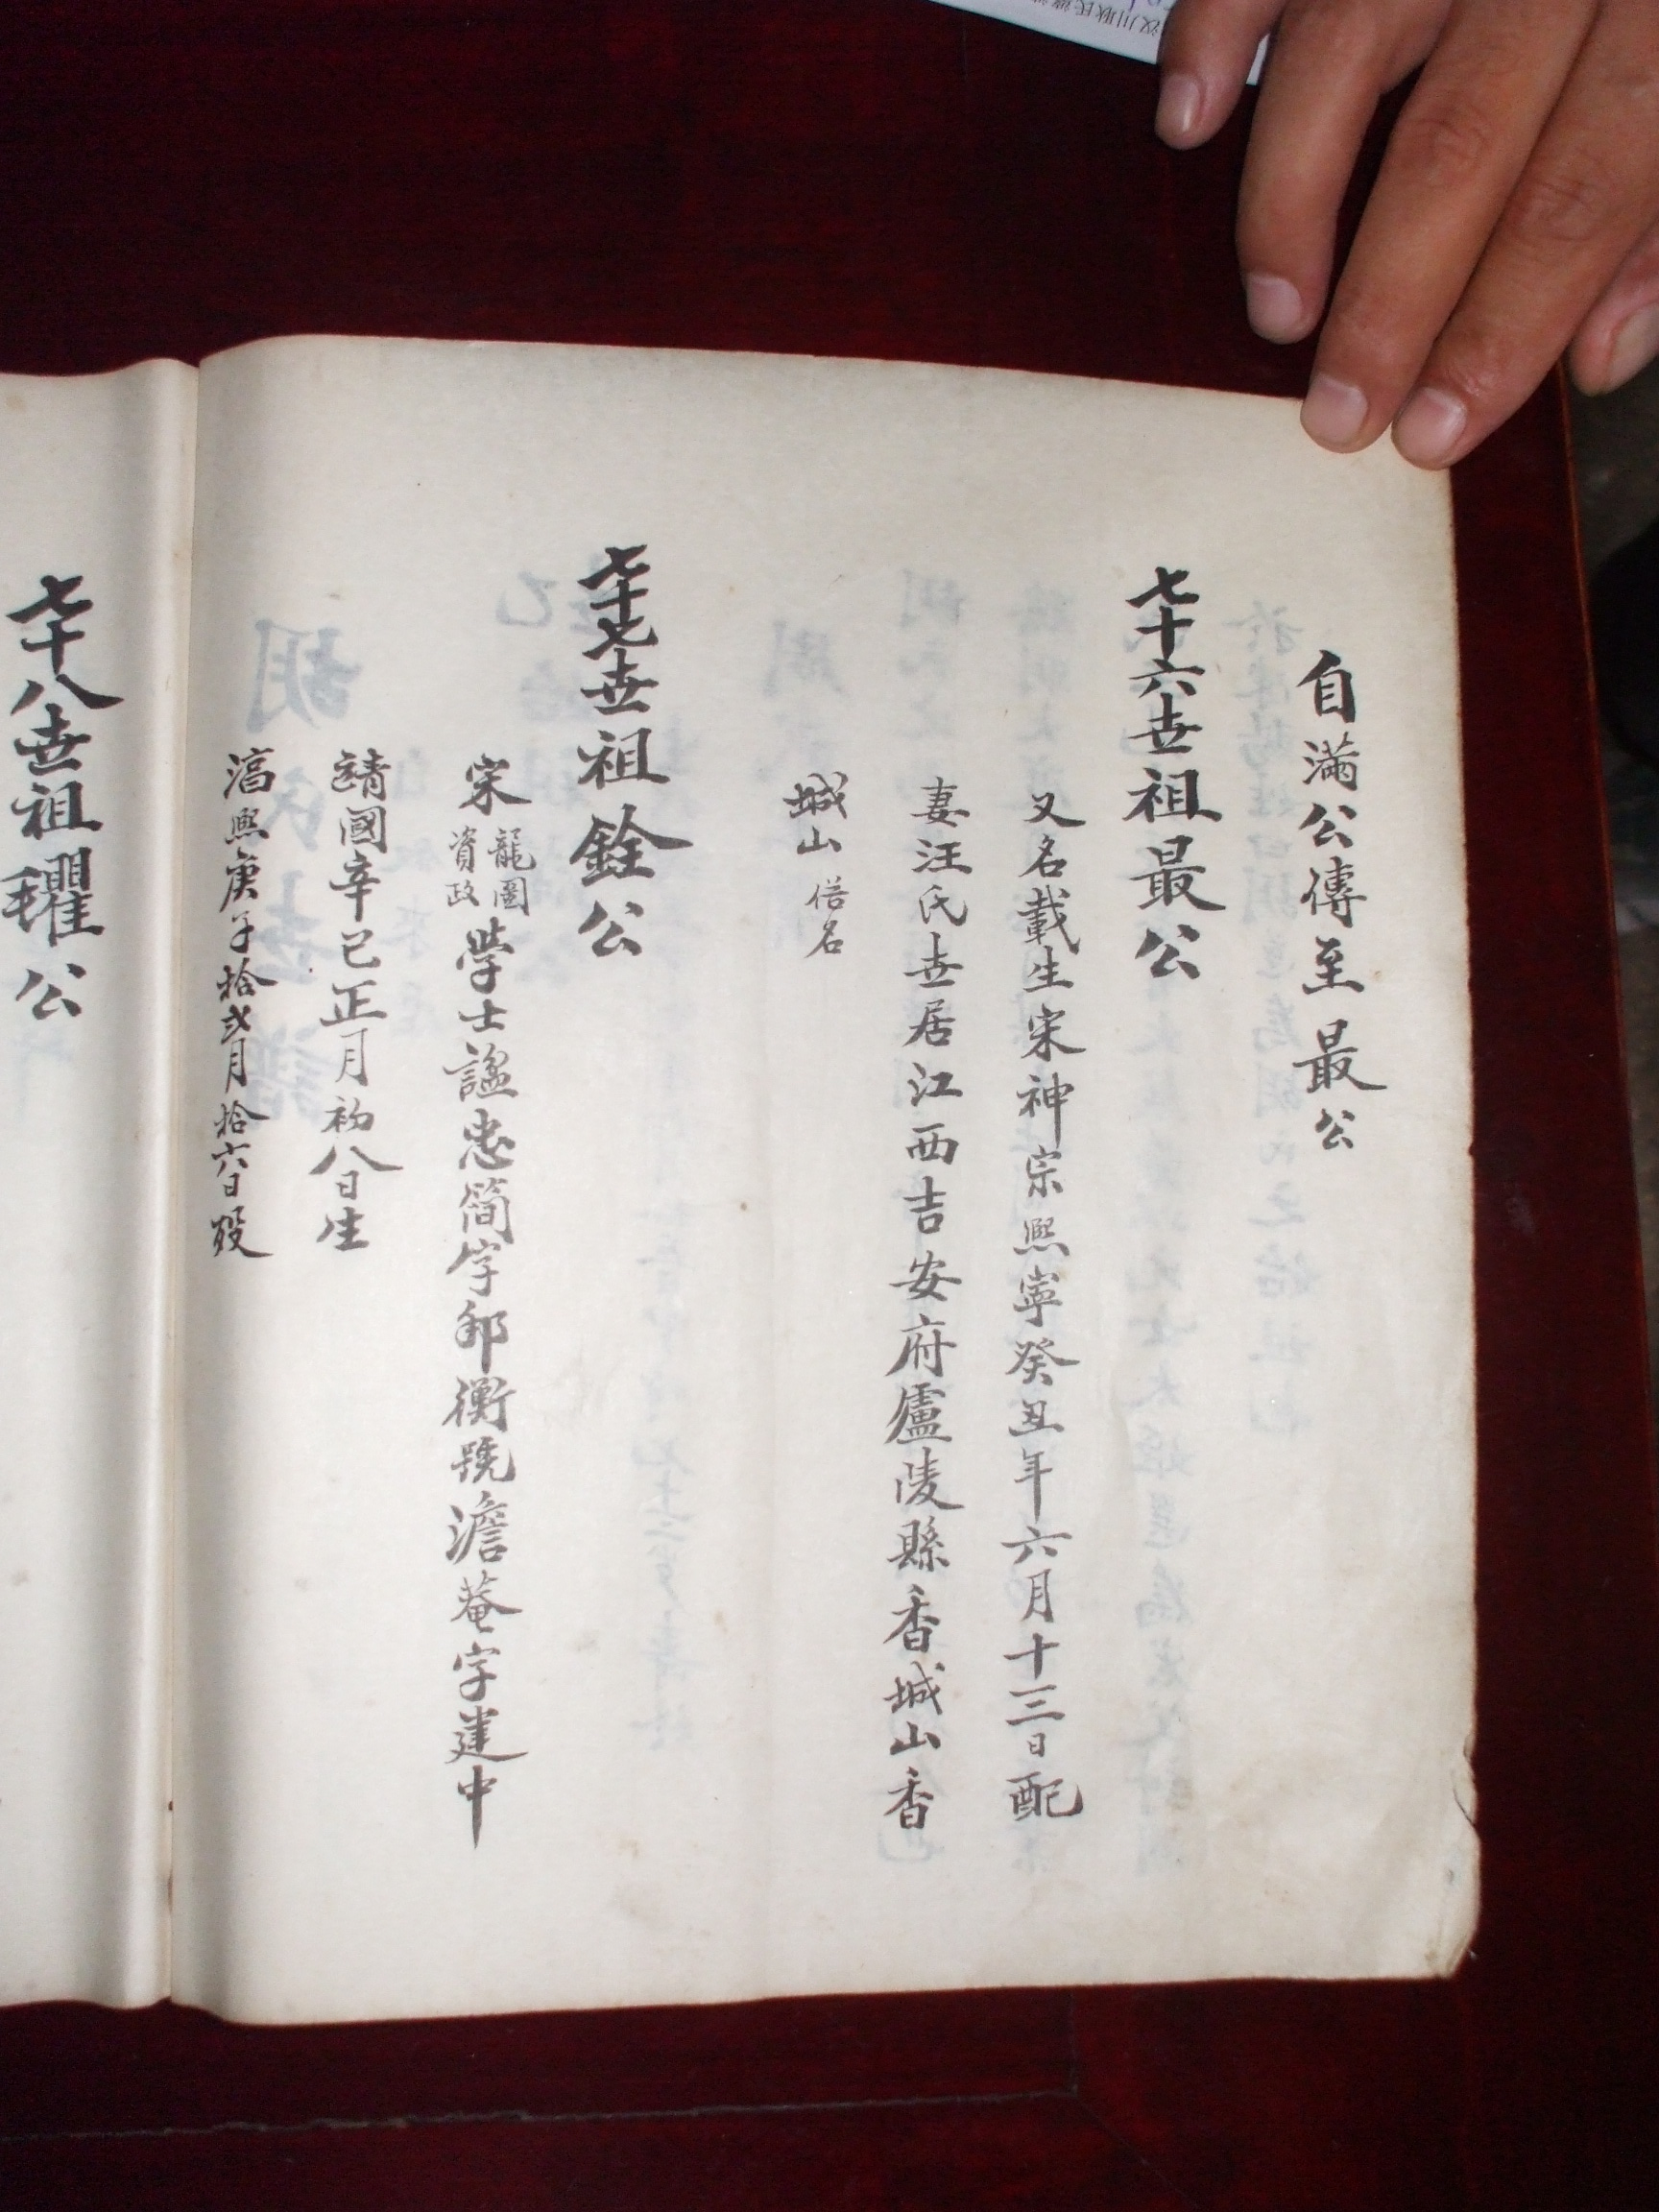 自滿公傳至最公
七十六世祖最公
又名載生宋神宗熙寧癸丑年六月十三日配
妻汪氏世居江西吉安府廬陵縣香城山香
城山俗名
七十七世祖銓公
宋龍圖資政學士謚忠簡字邦衡號澹菴字建中
靖國辛巳正月初八日生
熙庚子拾弍月拾六日歿
七十八世祖公